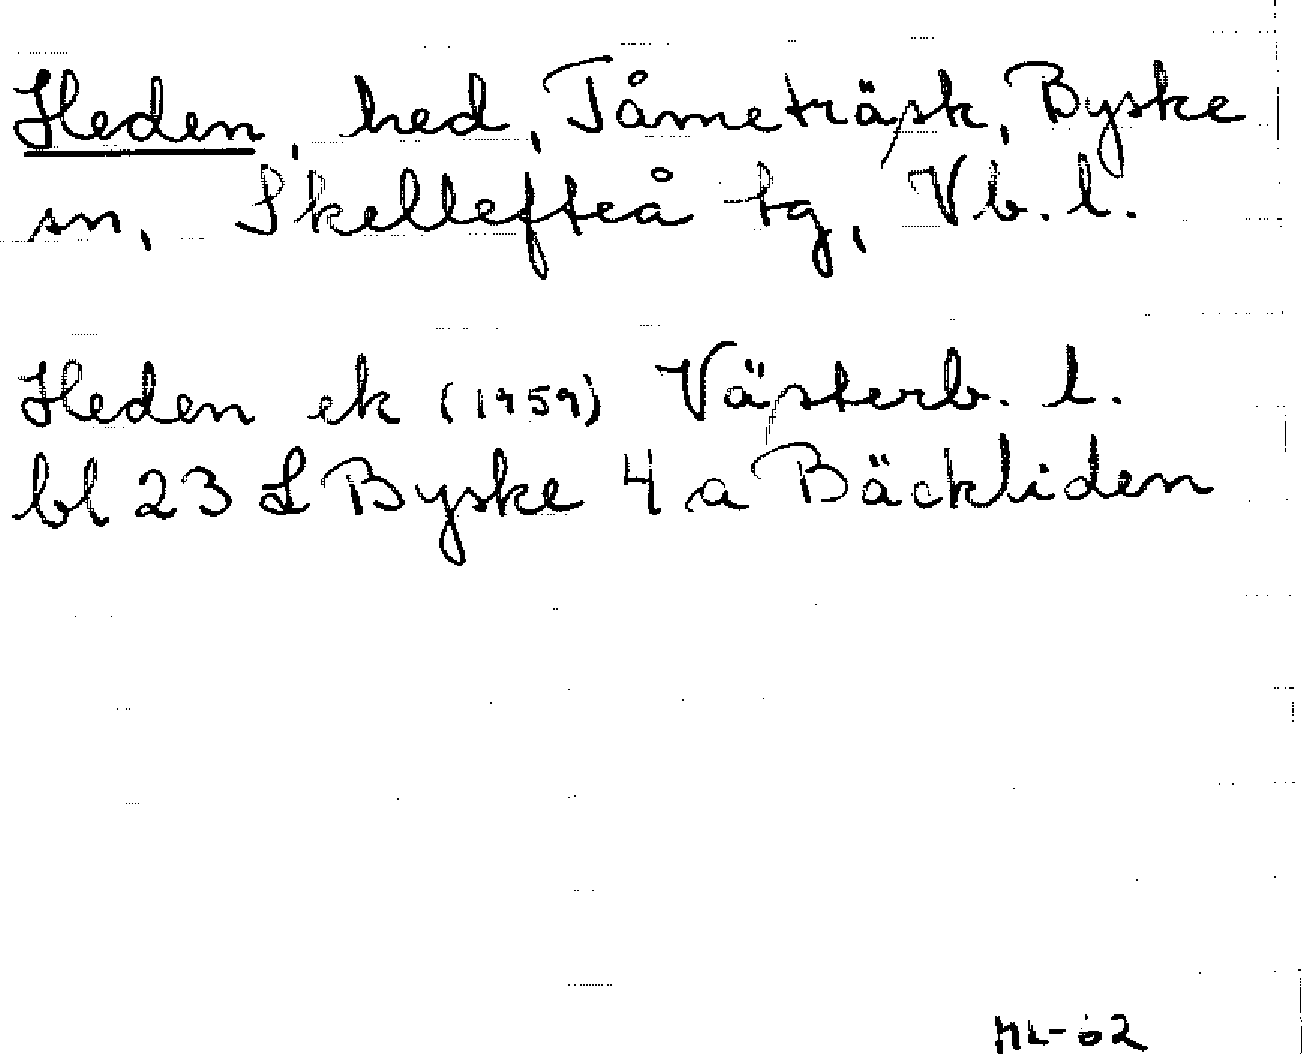 Heden, hed, Tåmeträsk, Byske
sn, Skellefteå tg, Vb. l.
Heden ek (1959) Västerb. l.
bl 23 L Byske 4 a Bäckliden
ML-62